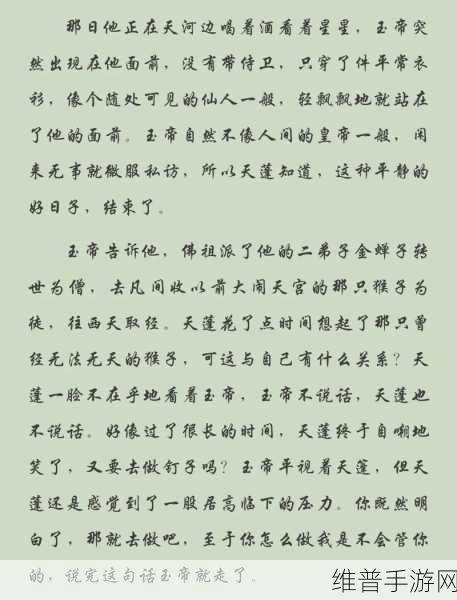 那日他正在天河边喝着酒看着星星，玉帝突
然出现在他面前，没有带侍卫，只穿了件平常衣
衫，像个随处可见的仙人一般，轻飘飘地就站在
了他的面前。玉帝自然不像人间的皇帝一般，闲
来无事就微服私访，所以天蓬知道，这种平静的
好日子，结束了。
玉帝告诉他，佛祖派了他的二弟子金蝉子转
世为僧，去凡间收以前大闹天宫的那只猴子为
徒，往西天取经。天蓬花了点时间想起了那只曾
经无法无天的猴子，可这与自己有什么关系？天
蓬一脸不在乎地看着玉帝，玉帝不说话，天蓬也
不说话。好像过了很长的时间，天蓬终于自嘲地
笑了，又要去做钉子吗？玉帝平视着天蓬，但天
蓬还是感觉到了一股居高临下的压力。你既然明
白了，那就去做吧，至于你怎么做我是不会管你
的，说完这句话玉帝就走了。
维普手游网